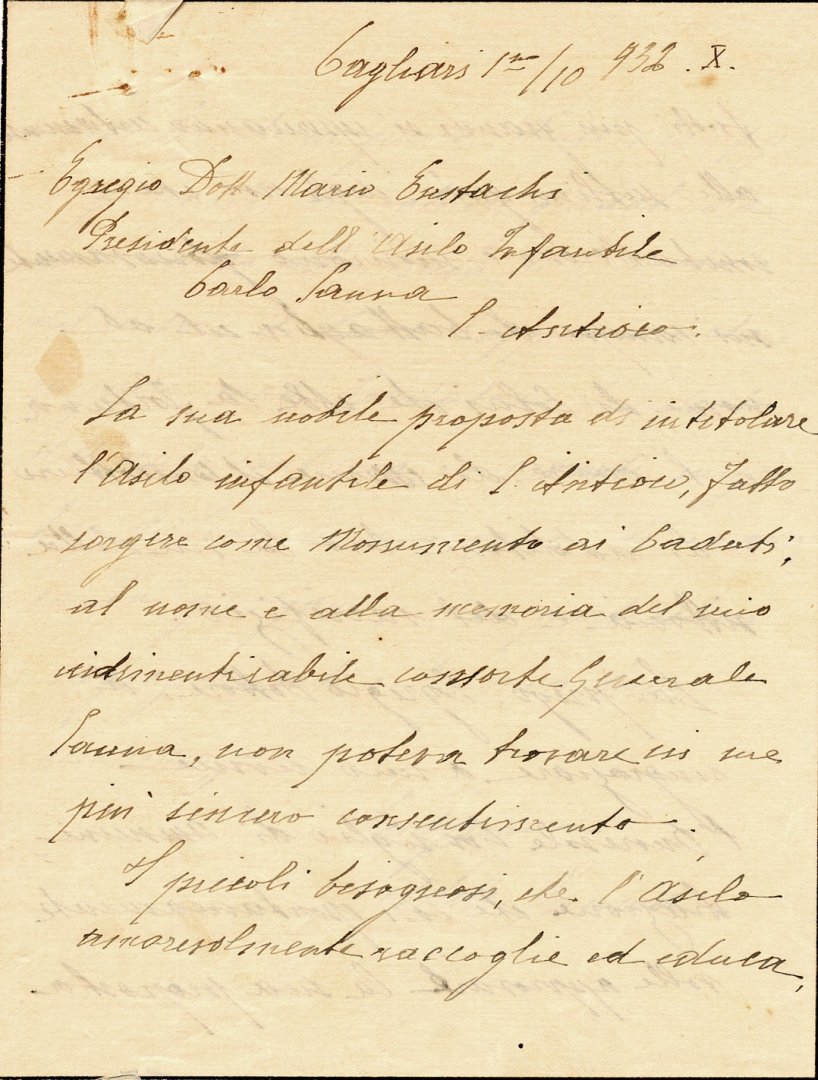 Cagliari 1mo/10 932. X.
Egregio Dott. Mario Eustachi
Presidente dell'Asilo Infantile
Carlo Sanna
S. Antioco.
La sua nobile proposta di intitolare
l'Asilo infantile di S. Antioco, fatto
sorgere come Monumento ai Caduti,
al nome e alla memoria del mio
indimenticabile consorte Generale
Sanna, non poteva trovare in me
più sincero consentimento.
I piccoli bisognosi, che l'Asilo
amorevolmente raccoglie ed educa,